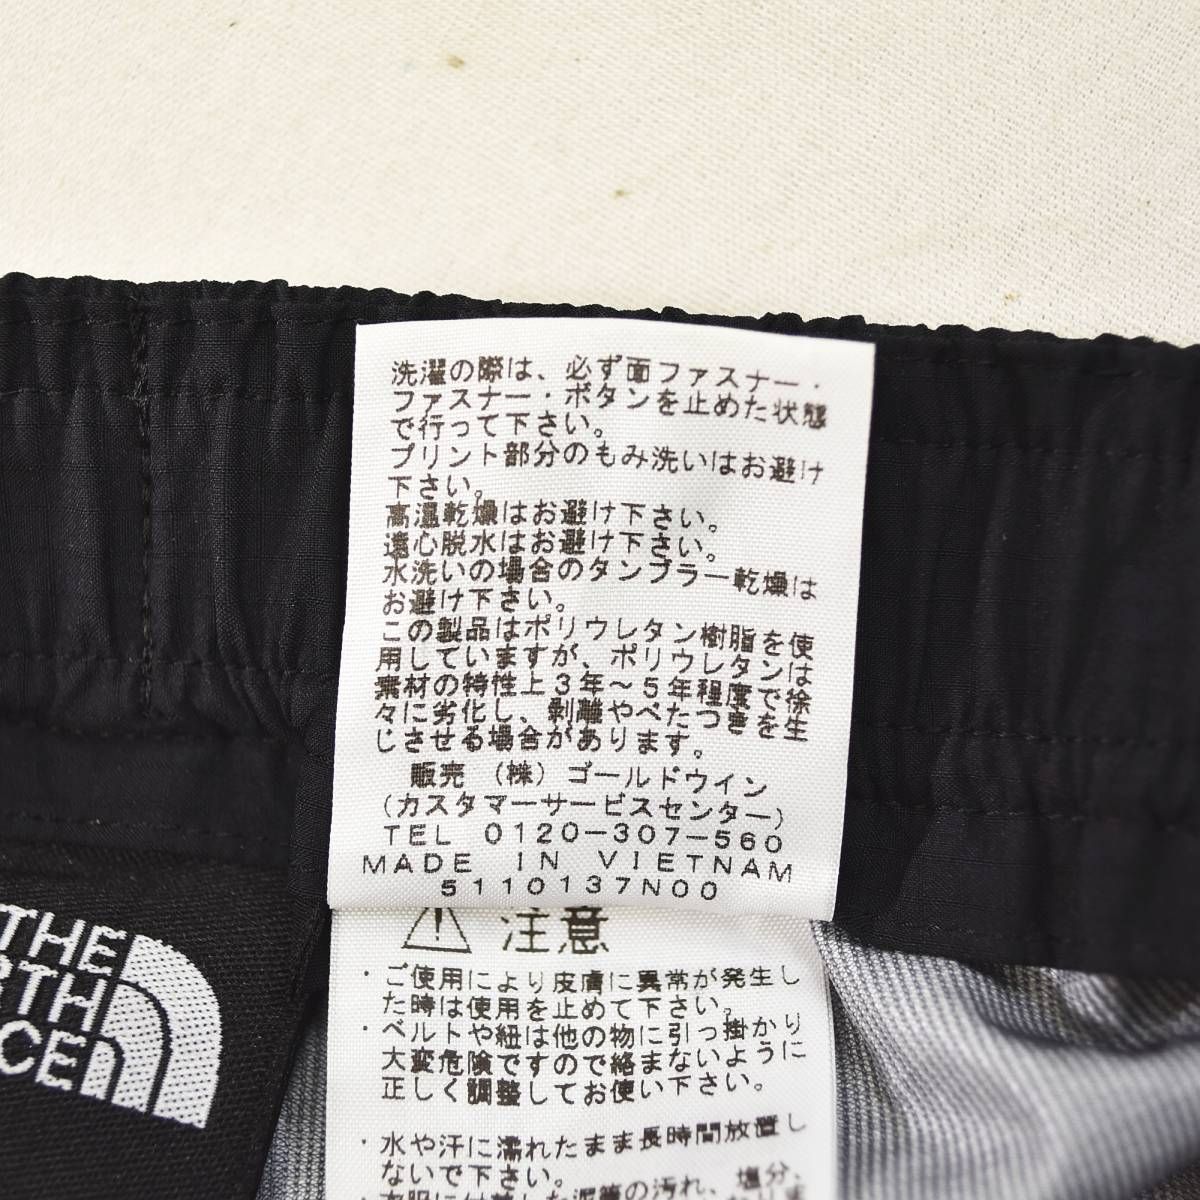 洗濯の際は、必ず面ファスナー・
ファスナー・ボタンを止めた状態
で行って下さい。
プリント部分のもみ洗いはお避け
下さい。
高温乾燥はお避け下さい。
遠心脱水はお避け下さい。
水洗いの場合のタンブラー乾燥は
お避け下さい。
この製品はポリウレタン樹脂を使
用していますが、ポリウレタンは
素材の特性上3年～5年程度で徐
々に劣化し、剥離やべたつきを生
じさせる場合があります。
販売 (株) ゴールドウイン
(カスタマーサービスセンター)
TEL 0120-307-560
MADE IN VIETNAM
5110137N00
注意
・ご使用により皮膚に異常が発生し
た時は使用を止めて下さい。
・ベルトや紐は他の物に引っ掛かり
大変危険ですので絡まないように
正しく調整してお使い下さい。
・水や汗に濡れたまま長時間放置し
ないで下さい。
・衣服に付着した泥等の汚れ、塩分、
THE
RTH
CE